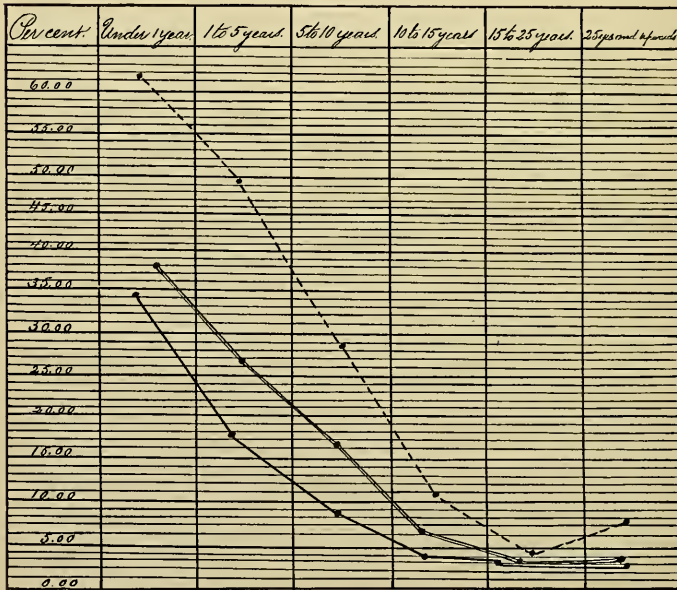 Per cent. Under 1 year. 1 to 5 years. 5 to 10 years. 10 to 15 years 15 to 25 years. 25 yrs and upwards
60.00
55.00
50.00
45.00
40.00
35.00
30.00
25.00
20.00
15.00
10.00
5.00
0.00